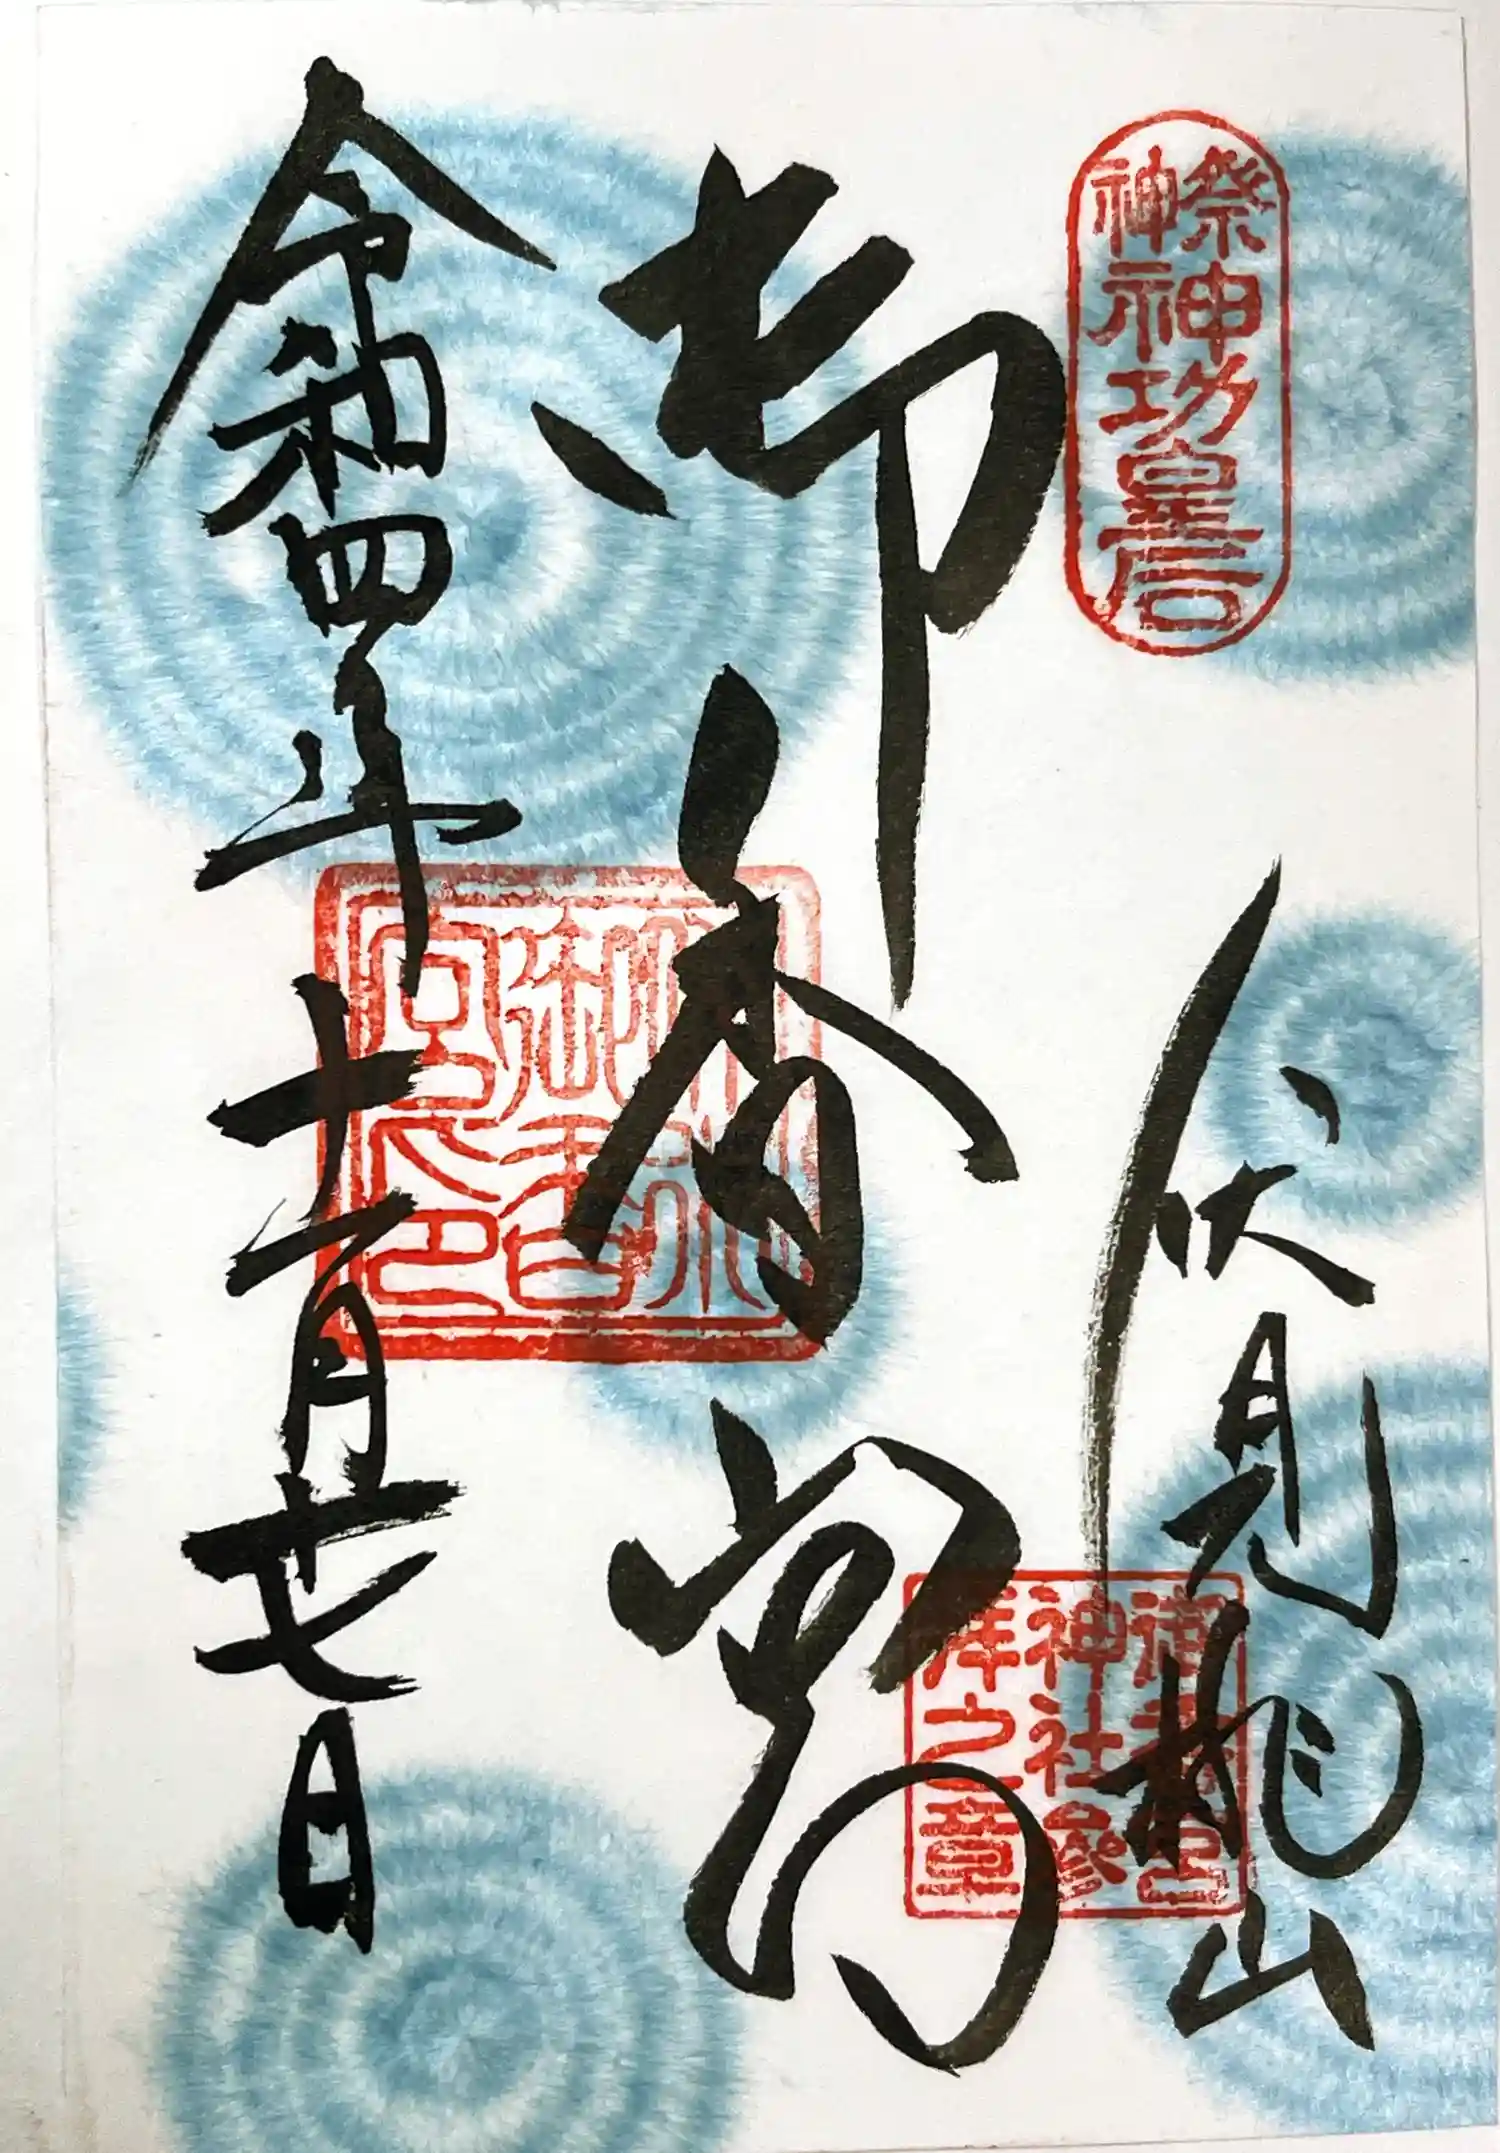 祭神
神功皇后
伏見桃山
御香宮
神社參
拝之章
御香宮
御香
宮印
令和四年十一月廿七日